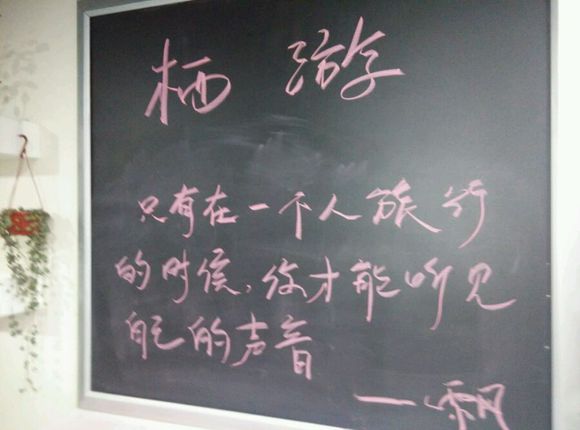 栖 游
只有在一个人旅行
的时候,你才能听见
自己的声音
——飘